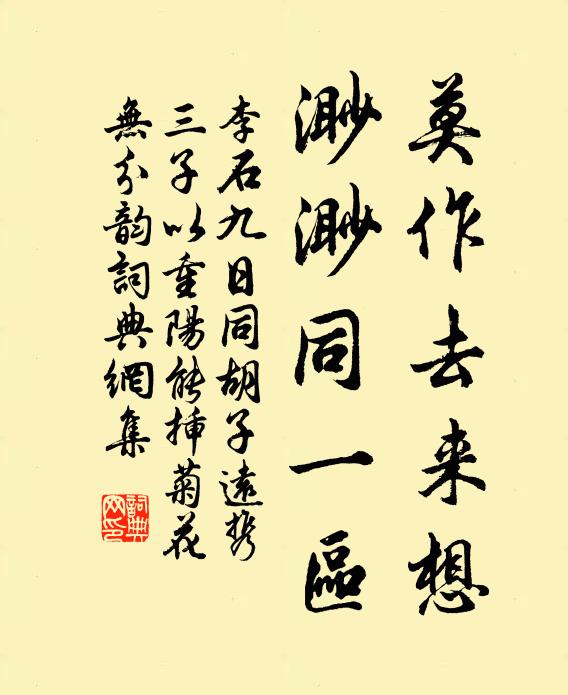 莫作去来想
渺渺同一區
李石九日同胡子遠携
三子以重陽能插菊花
無分韵詞典網集
詞典
网印